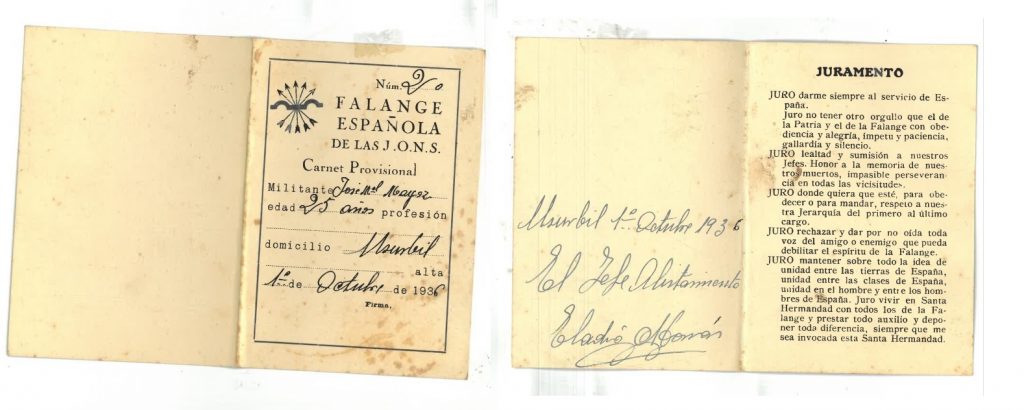 Núm. 20
FALANGE
ESPAÑOLA
DE LAS J.O.N.S.
Carnet Provisional
Militante José Mª Mayoz
edad 25 años profesión
domicilio Usurbil
alta
1º de Octubre de 1936
Firma.
Usurbil 1º Octubre 1936
El Jefe Alistamiento
Eladio
JURAMENTO
JURO darme siempre al servicio de Es-
paña.
Juro no tener otro orgullo que el de
la Patria y el de la Falange con obe-
diencia y alegría, ímpetu y paciencia,
gallardía y silencio.
JURO lealtad y sumisión a nuestros
Jefes. Honor a la memoria de nues-
tros muertos, impasible perseveran-
cia en todas las vicisitudes.
JURO donde quiera que esté, para obe-
decer o para mandar, respeto a nues-
tra Jerarquía del primero al último
cargo.
JURO rechazar y dar por no oída toda
voz del amigo o enemigo que pueda
debilitar el espíritu de la Falange.
JURO mantener sobre todo la idea de
unidad entre las tierras de España,
unidad entre las clases de España,
unidad en el hombre y entre los hom-
bres de España. Juro vivir en Santa
Hermandad con todos los de la Fa-
lange y prestar todo auxilio y depo-
ner toda diferencia, siempre que me
sea invocada esta Santa Hermandad.